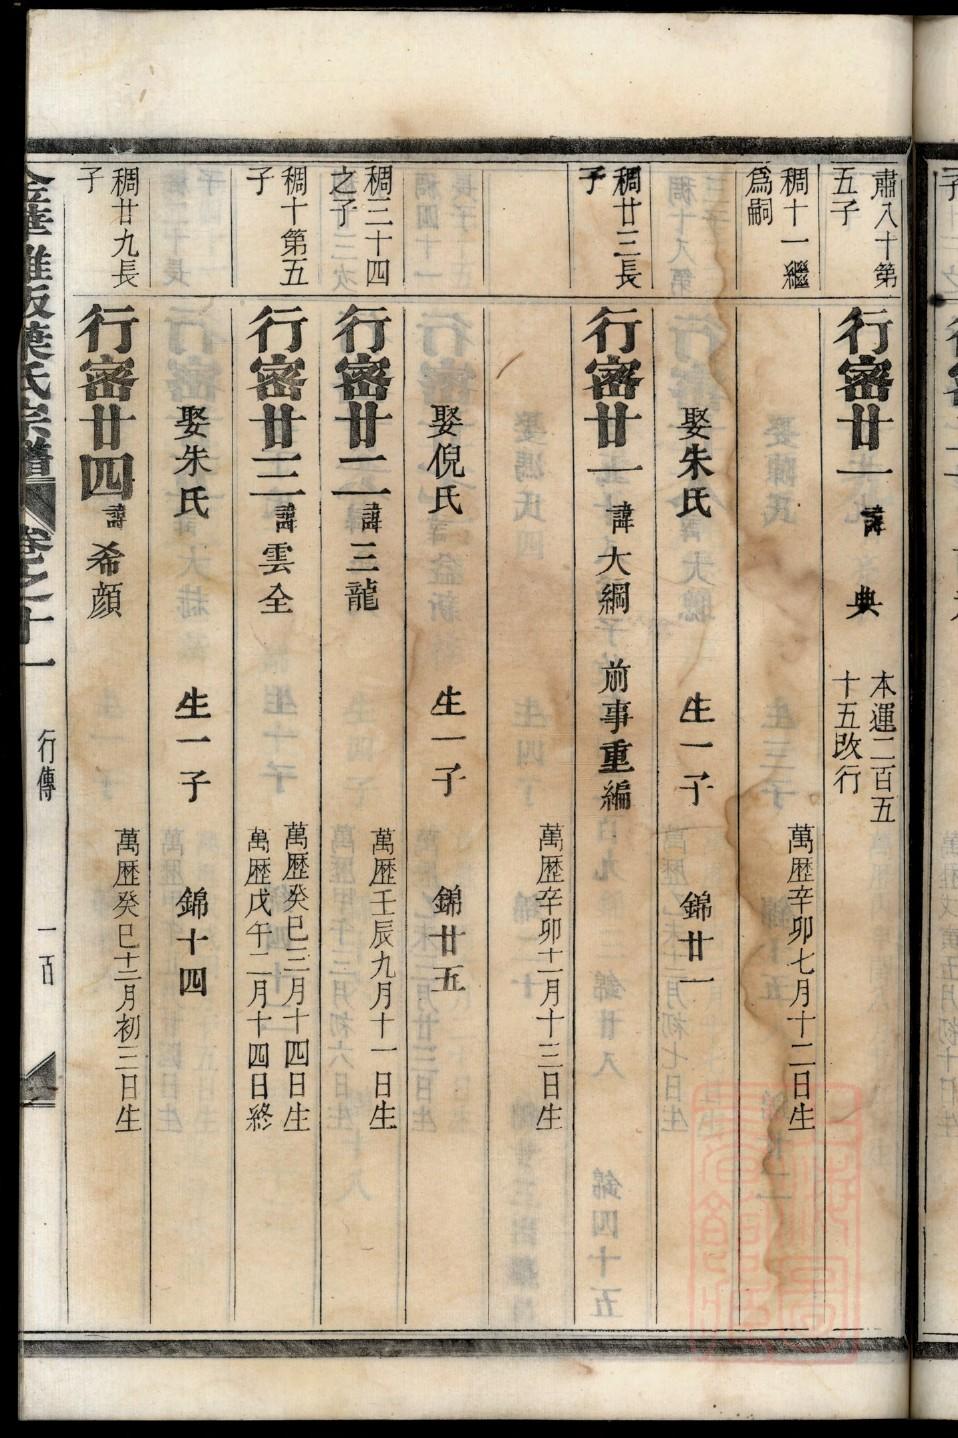 肅八十第
五子
行密廿一 諱 典
本運二百五
十五改行
稠十一繼
爲嗣
萬歷辛卯七月十二日生
娶朱氏 生一子 錦廿一
稠廿三長
子
行密廿一 諱 大綱 前事重編
萬歷辛卯十二月十三日生
娶倪氏 生一子 錦廿五
稠三十四
之子
行密廿二 諱 三龍
萬歷壬辰九月十一日生
稠十第五
子
行密廿三 諱 雲全
萬歷癸巳三月十四日生
萬歷戊午二月十四日終
娶朱氏 生一子 錦十四
稠廿九長
子
行密廿四 諱 希顔
萬歷癸巳十二月初三日生
葉氏宗譜 卷之十一 行傳 一百